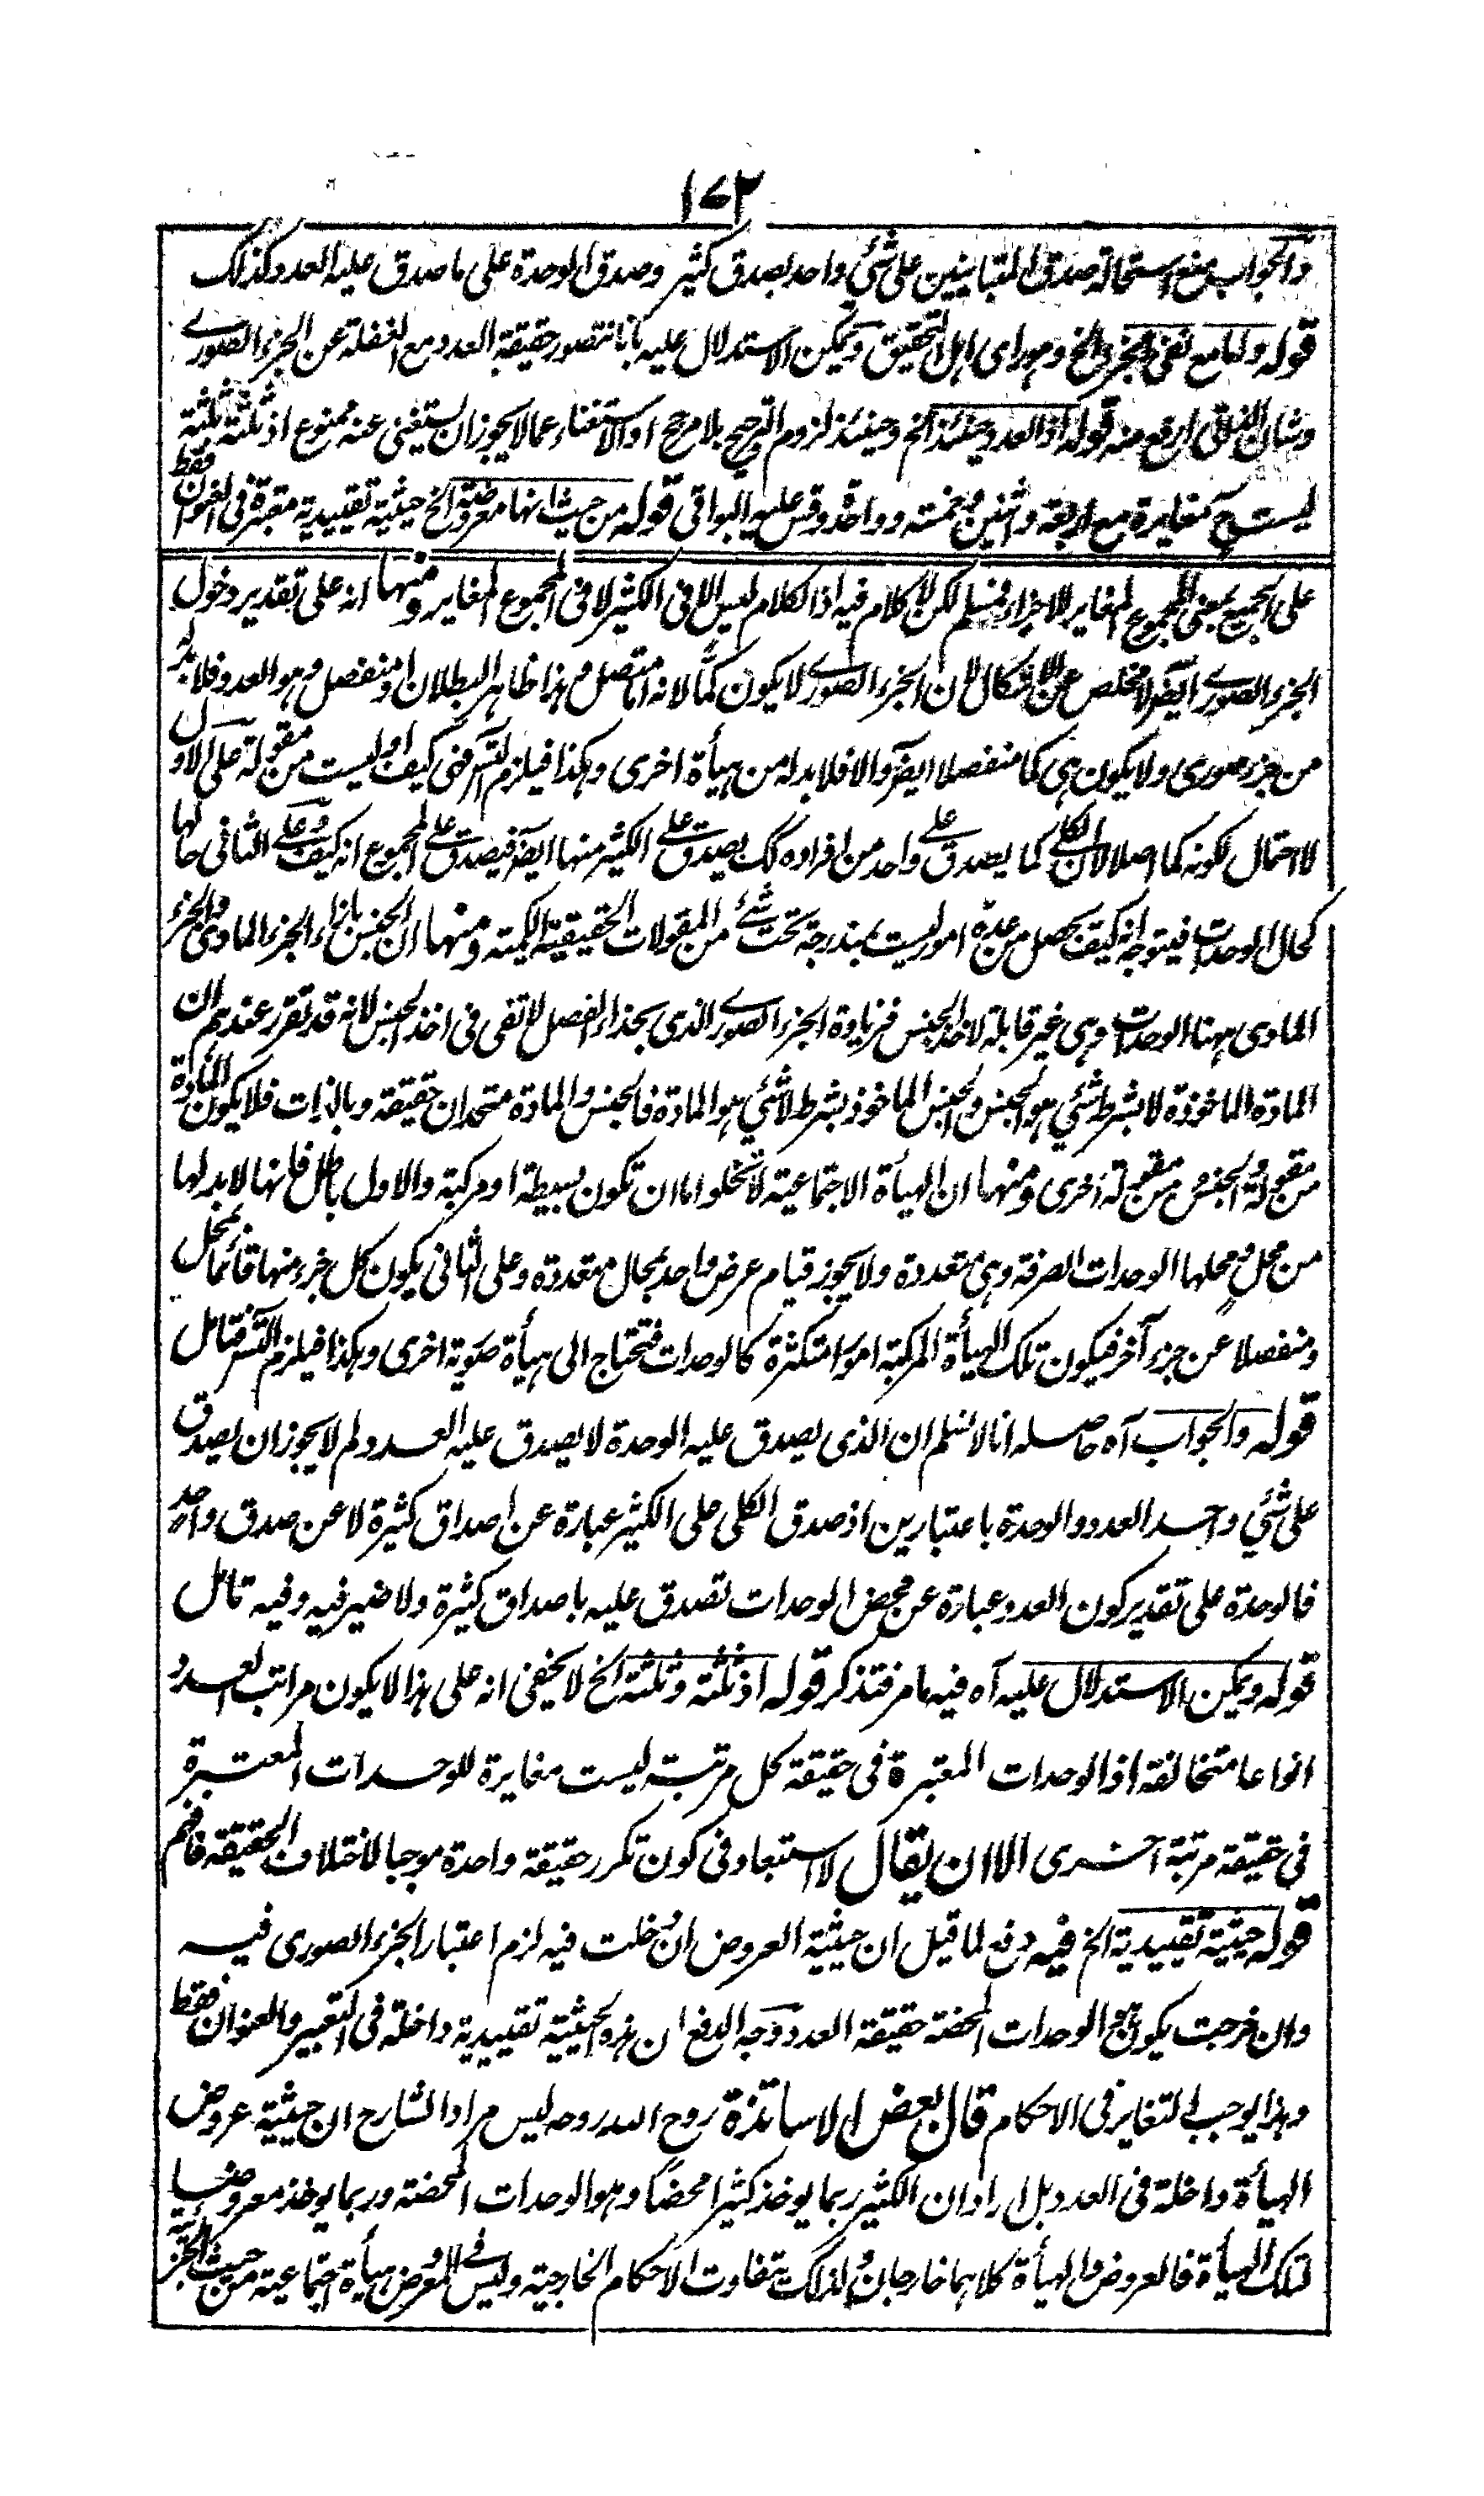 ١٧٢
والجواب منع استحالة صدق المتباينين على شئي واحد بصدق كثير وصدق الوحدة على ما صدق عليه العدد كذلك
قوله واما مع نفي الجزء الخ وهو راى اهل التحقيق ويمكن الاستدلال عليه بانا نتصور حقيقة العدد مع الغفلة عن الجزء الصورے
وشان الذاتى ارفع منه قوله اذ العدد حينئذ الخ وحينئذ لزوم الترجيح بلا مرجح او الاستغناء عما لا يجوز ان يستغنى عنه ممنوع اذ ثلثة وثلثة
ليست ح مغايرة مع اربعة واثنين وخمسة وواحد وقس عليه البواقى قوله من حيث انها معروضة الخ حيثية تقييدية معتبرة فى العنوان فقط
على الجميع بمعنى المجموع المغاير للاجزاء فمسلم لكن لا كلام فيه اذ الكلام ليس الا فى الكثير لا فى المجموع المغاير ومنها انه على تقدير دخول
الجزء الصورے ايضا لا مخلص عن الاشكال لان الجزء الصورے لا يكون كمّا لانه اما متصل وهذا ظاهر البطلان او منفصل وهو العدد فلا بد له
من جزء صورى ولا يكون هى كما منفصلا ايضا والا فلا بد له من هيأة اخرى وهكذا فيلزم التس فهى كيف او ليست من مقولة على الاول
لا احتمال لكونه كما اصلا لان الكلى كما يصدق على واحد من افراده كك يصدق على الكثير منها ايضا فيصدق على المجموع انه كيف وعلى الثانى حالها
كحال الوحدات فيتوجه انه كيف يحصل من عدة امور ليست بمندرجة تحت شئ من المقولات الحقيقية الكمية ومنها ان الجنس بازاء الجزء المادى والجزء
المادى ههنا الوحدات وهى غير قابلة لاخذ الجنس فزيادة الجزء الصورے الذى بحذاء الفصل لا تفى فى اخذ الجنس لانه قد تقرر عندهم ان
المادة الماخوذة لا بشرط شئي هو الجنس والجنس الماخوذ بشرط لا شئي هو المادة فالجنس والمادة متحدان حقيقة وبالذات فلا يكون المادة
من مقولة والجنس من مقولة اخرى ومنها ان الهيأة الاجتماعية لا تخلو اما ان تكون بسيطة او مركبة والاول باطل فانها لا بد لها
من محل ومحلها الوحدات الصرفة وهى متعددة ولا يجوز قيام عرض واحد بمحال متعددة وعلى الثانى يكون كل جزء منها قائما بمحل
ومنفصلا عن جزء آخر فيكون تلك الهيأة المركبة امورا متكثرة كالوحدات فتحتاج الى هيأة صورية اخرى وهكذا فيلزم التس فتامل
قوله والجواب آه حاصله انا لا نسلم ان الذى يصدق عليه الوحدة لا يصدق عليه العدد ولم لا يجوز ان يصدق
على شئي واحد العدد والوحدة باعتبارين اذ صدق الكلى على الكثير عبارة عن اصداق كثيرة لا عن صدق واحد
فالوحدة على تقدير كون العدد عبارة عن محض الوحدات تصدق عليه باصداق كثيرة ولا ضير فيه وفيه تامل
قوله ويمكن الاستدلال عليه آه فيه ما مر فتذكر قوله اذ ثلثة وثلثة الخ لا يخفى انه على هذا لا يكون مراتب العدد
انواعا متخالفة اذ الوحدات المعتبرة فى حقيقة كل مرتبة ليست مغايرة للوحدات المعتبرة
فى حقيقة مرتبة اخرى الا ان يقال لا استبعاد فى كون تكرر حقيقة واحدة موجبا لاختلاف الحقيقة فافهم
قوله حيثية تقييدية الخ فيه دفع لما قيل ان حيثية العروض ان دخلت فيه لزم اعتبار الجزء الصورى فيه
وان خرجت يكون ح الوحدات المحضة حقيقة العدد ووجه الدفع ان هذه الحيثية تقييدية داخلة فى التعبير والعنوان فقط
وهذا يوجب التغاير فى الاحكام قال بعض الاساتذة روح الله روحه ليس مراد الشارح ان حيثية عروض
الهيأة داخلة فى العدد بل اراد ان الكثير ربما يوخذ كثيرا محضا وهو الوحدات المحضة وربما يوخذ معروضا
لتلك الهيأة فالعروض والهيأة كلاهما خارجان ولذلك يتفاوت الاحكام الخارجية وليس فى المعروض هيأة اجتماعية من حيث الجزئية